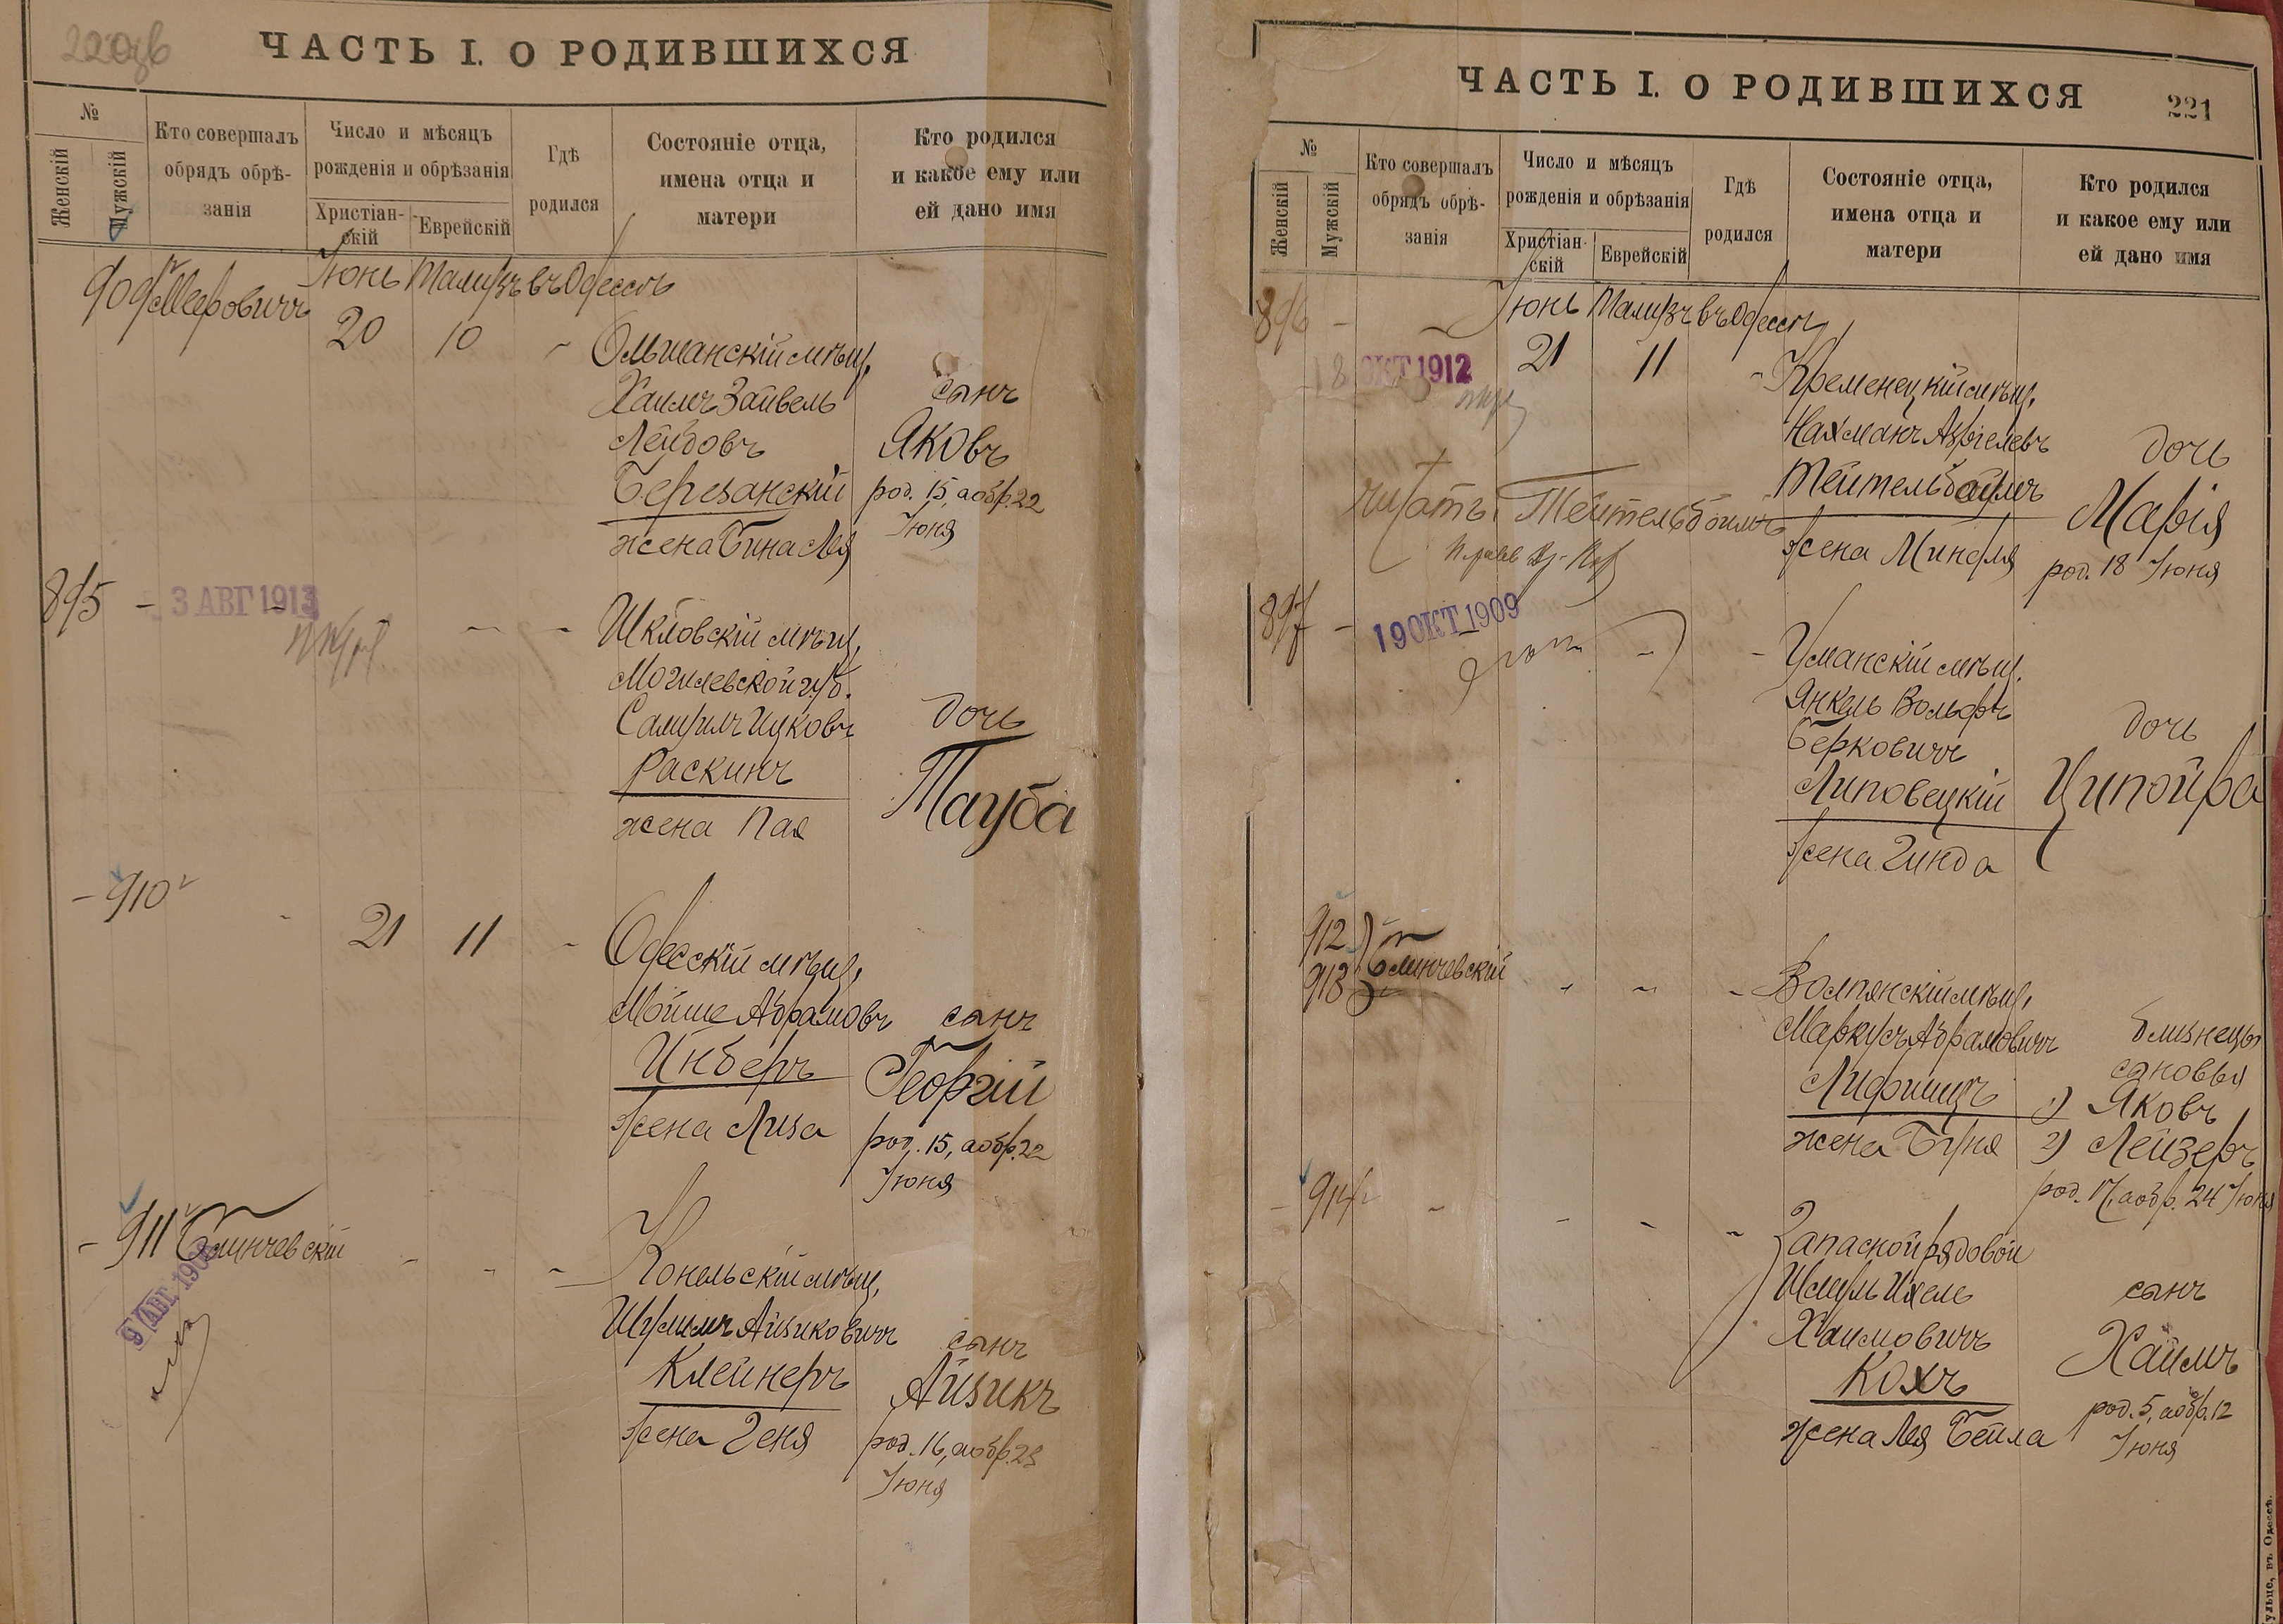 220об
ЧАСТЬ I. О РОДИВШИХСЯ
№
Женскій
Мужскій
Кто совершалъ
обрядъ обрѣ-
занія
Число и мѣсяцъ
рожденія и обрѣзанія
Христіан-
скій
Еврейскій
Гдѣ
родился
Состояніе отца,
имена отца и
матери
Кто родился
и какое ему или
ей дано имя
909 Меерович
Іюнь Тамузъ въ Одессѣ
20 10
Ольшанскій мѣщ.
Хаимъ Зайвель
Лейбовъ
Березанскій
жена Бина Лея
сынъ
Яковъ
род. 15, а обр. 22
Іюня
895 - 3 АВГ 1913
Шкловскій мѣщ.
Могилевской губ.
Самуилъ Ицковъ
Раскинъ
жена Пая
дочь
Тауба
- 910
21 11
Одесскій мѣщ.
Мойше Абрамовъ
Инберъ
жена Лиза
сынъ
Георгій
род. 15, а обр. 22
Іюня
- 911 Блинчевскій
9 АВГ. 190
Конельскій мѣщ.
Шулимъ Айзиковичъ
Клейнеръ
жена Геня
сынъ
Айзикъ
род. 16, а обр. 23
Іюня
ЧАСТЬ I. О РОДИВШИХСЯ
221
№
Женскій
Мужскій
Кто совершалъ
обрядъ обрѣ-
занія
Число и мѣсяцъ
рожденія и обрѣзанія
Христіан-
скій
Еврейскій
Гдѣ
родился
Состояніе отца,
имена отца и
матери
Кто родился
и какое ему или
ей дано имя
896 -
Іюнь Тамузъ въ Одессѣ
18 ОКТ 1912
21 11
Кременецкій мѣщ.
Нахманъ Азріелевъ
Тейтельбаумъ
жена Миндля
дочь
Марія
род. 18 Іюня
читать: Тейтельбоимъ
897 -
19 ОКТ 1909
Уманскій мѣщ.
Янкель Вольфъ
Берковичъ
Липовецкій
жена Гинда
дочь
Ципойра
912
913 Блинчевскій
Волпянскій мѣщ.
Маркусъ Абрамовичъ
Лифшицъ
жена Буня
близнецы
сыновья
1) Яковъ
2) Лейзеръ
род. 17, а обр. 24 Іюня
- 914
Запасной рядовой
Шмуль Ихель
Хаимовичъ
Кохъ
жена Лея Бейла
сынъ
Хаимъ
род. 5, а обр. 12
Іюня
въ Одессѣ.